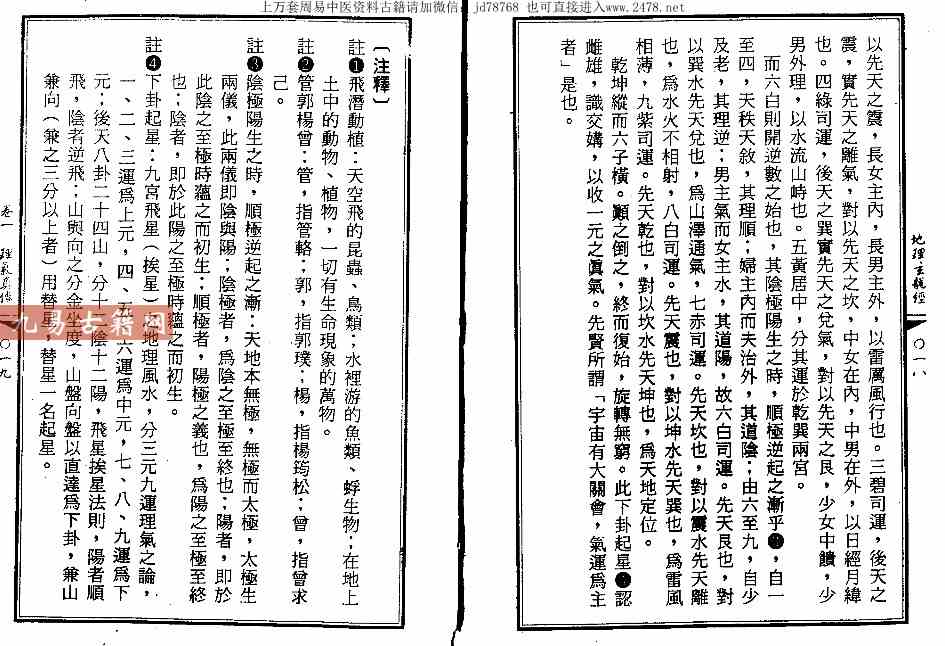 上万套周易中医资料古籍请加微信:jd78768 也可直接进入www.2478.net
地理玄龍經
○一八
以先天之震,長女主內,長男主外,以雷厲風行也。三碧司運,後天之
震,實先天之離氣,對以先天之坎,中女在內,中男在外,以日經月緯
也。四綠司運,後天之巽實先天之兌氣,對以先天之艮,少女中饋,少
男外理,以水流山峙也。五黃居中,分其運於乾巽兩宮。
而六白則開逆數之始也,其陰極陽生之時,順極逆起之漸乎❸,自一
至四,天秩天敘,其理順;婦主內而夫治外,其道陰;由六至九,自少
及老,其理逆;男主氣而女主水,其道陽,故六白司運。先天艮也,對
以巽水先天兌也,為山澤通氣,七赤司運。先天坎也,對以震水先天離
也,為水火不相射,八白司運。先天震也,對以坤水先天巽也,為雷風
相薄,九紫司運。先天乾也,對以坎水先天坤也,為天地定位。
乾坤縱而六子橫。顛之倒之,終而復始,旋轉無窮。此下卦起星❹認
雌雄,識交媾,以收一元之眞氣。先賢所謂「宇宙有大關會,氣運為主
者」是也。
〔注釋〕
註❶飛潛動植:天空飛的昆蟲、鳥類;水裡游的魚類、蜉生物;在地上
土中的動物、植物,一切有生命現象的萬物。
註❷管郭楊曾:管,指管輅;郭,指郭璞;楊,指楊筠松;曾,指曾求
己。
註❸陰極陽生之時,順極逆起之漸:天地本無極,無極而太極,太極生
兩儀,此兩儀即陰與陽;陰極者,為陰之至極至終也;陽者,即於
此陰之至極時蘊之而初生;順極者,陽極之義也,為陽之至極至終
也;陰者,即於此陽之至極時蘊之而初生。
註❹下卦起星:九宮飛星(挨星)之地理風水,分三元九運理氣之論,
一、二、三運為上元,四、五、六運為中元,七、八、九運為下
元;後天八卦二十四山,分十二陰十二陽,飛星挨星法則,陽者順
飛,陰者逆飛;山與向之分金坐度,山盤向盤以直達為下卦,兼山
兼向(兼之三分以上者)用替星,替星一名起星。
卷一 理氣真傳
○一九
九易古籍网